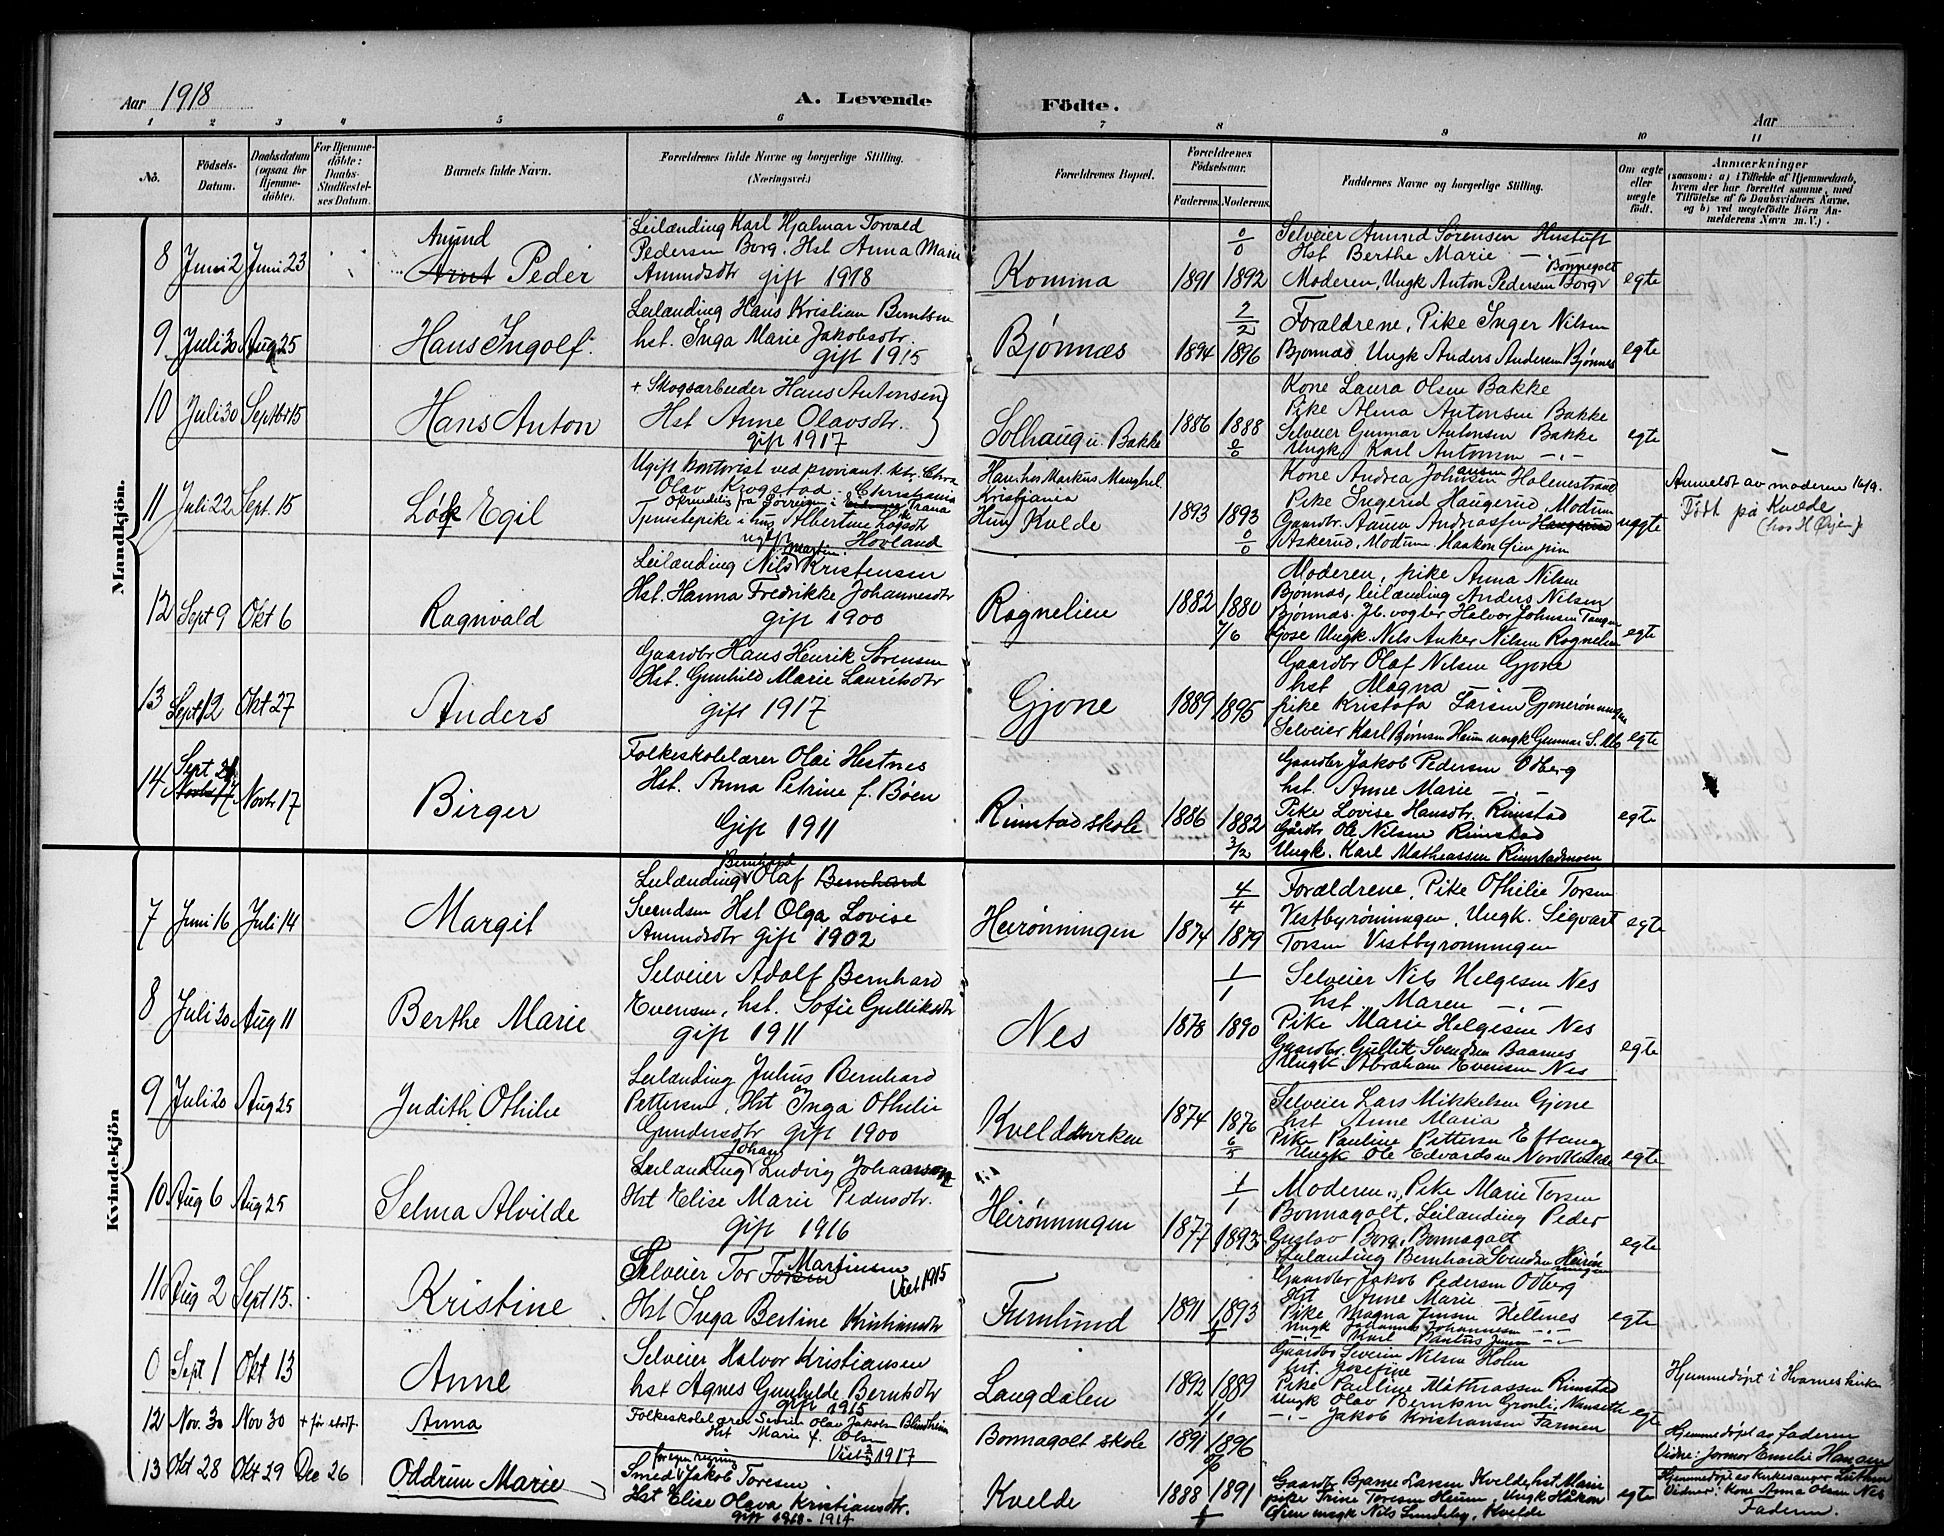 Aar 1918
A. Levende Födte.
Aar
1 2 3 4 5 6 7 8 9 10 11
No.
Födsels-Datum.
Daabsdatum (ogsaa for Hjemmedöbte).
For Hjemmedöbte: Daabs-Stadfæstelses Datum.
Barnets fulde Navn.
Forældrenes fulde Navne og borgerlige Stilling.
(Næringsvei.)
Forældrenes Bopæl.
Forældrenes Födselsaar.
Faderens. Moderens.
Faddernes Navne og borgerlige Stilling.
Om ægte eller uægte födt.
Anmærkninger
(saasom: a) i Tilfælde af Hjemmedaab, hvem der har forrettet samme, med Tilföielse af to Daabsvidners Navne, og b) ved uægtefödte Börn Anmelderens Navn m. V.)
Mandkjön.
8 Juni 2 Juni 23
Amund
Arnt Peder
Leilænding Karl Hjalmar Torvald
Pedersen Borg. Hst Anna Marie
Amundsdtr gift 1918
Komma
1891 1892
0/0
Selveier Amund Sørensen Hustuft
Hst Berthe Marie —
Bonnegolt
Moderen, Ungk Anton Pedersen Borg
egte
9 Juli 30 Aug 25
Hans Ingolf.
Leilænding Hans Kristian Berntsen
hst. Inga Marie Jakobsdtr.
gift 1915
Bjønnæs
1894 1896
2/2
Forældrene, Pike Inger Nilsen
Bjønnæs Ungk Anders Andersen Bjønnes
egte
10 Juli 30 Septbr 15
Hans Anton
+ Skogsarbeider Hans Antonsen
Hst Anne Olavsdtr.
gift 1917
Solhaug u. Bakke
1886 1888
0/0
Kone Laura Olsen Bakke
Pike Alma Antonsen Bakke
Selveier Gunnar Antonsen Bakke
Ungk Karl Antonsen —
egte
11 Juli 22 Sept. 15
Egil
Ugift kontorist ved proviant. Chra
Olav Krogstad. Christiania
Tjenestepike Albertine
ugift Hovland
Han: hos Markus
Kristiania
Hun Kvelde
1893 1893
0/0
Kone Andrea Johansen Holmestrand
Pike Ingerid Haugerud Modum
Gaardbr. Anton Andreassen Haugerud
Askerud, Modum Haakon Øien
uegte
Anmeldt av moderen 16/9.
Født på Kvelde
(hos H Øien)
12 Sept 9 Okt 6
Ragnvald
Martin
Leilænding Nils Kristensen
Hst. Hanna Fredrikke Johannesdtr
gift 1900
Rognelien
1882 1880
7/6
Moderen, pike Anna Nilsen
Bjønnæs, leilænding Anders Nilsen
Bjønnæs. Jb. vogter Halvor Johnsen Tangen
Gose Ungk. Nils Anker Nilsen Rognelien
egte
13 Sept 12 Okt 27
Anders
Gaardbr Hans Henrik Sørensen
Hst. Gunhild Marie Lauritsdtr
gift 1917
Gjone
1889 1895
Gaardbr Olaf Nilsen Gjone
hst Magna —
pike Kristofa Larsen Gjonerønningen
Selveier Karl Bjørnsen Heum ungk Gunnar S.
egte
14 Sept 21 Novbr 17 Novbr 17
Birger
Folkeskolelærer Olai Hestnes
Hst. Anna Petrine f. Bøen
Gift 1911
Rimstad skole
1886 1882
3/2
Gaardbr Jakob Pedersen Odberg
hst. Anne Marie — . —
Pike Lovise Hansdtr. Rimstad
Gårdbr Ole Nilsen Rimstad
Ungk. Karl Mathiassen Rimstadmoen
egte
Kvindekjön
7 Juni 16 Juli 14
Margit
Bernhard
Leilænding Olaf Bernhard
Svendsen Hst Olga Lovise
Amundsdtr gift 1902
Heirønningen
1874 1879
4/4
Forældrene, Pike Othilie Torsen
Vestbyrønningen, Ungk. Sigvart
Torsen Vestbyrønningen
egte
8 Juli 20 Aug 11
Berthe Marie
Selveier Adolf Bernhard
Evensen, hst. Sofie Gulliksdtr
gift 1911
Nes
1878 1890
1/1
Selveier Nils Helgesen Nes
hst Maren — . —
Pike Marie Helgesen Nes
Gaardbr. Gullik Svendsen Baarnes
Ungk Abraham Evensen Nes
egte
9 Juli 20 Aug 25
Judith Othilie
Leilænding Julius Bernhard
Pettersen, Hst Inga Othilie
Gundersdtr gift 1900
Kveldekirken
1874 1876
6/5
Selveier Lars Mikkelsen Gjone
hst Anne Maria
Pike Pauline Pettersen Eftang
Ungk Ole Edvardsen Nordkvelde
egte
10 Aug 6 Aug 25
Selma Alvilde
Johan
Leilænding Ludvig Johannsen
Hst Elise Marie Pedersdtr.
gift 1916
Heirønningen
1877 1893
1/1
Moderen, Pike Marie Torsen
Bonnagolt, Leilænding Peder
Gustav Borg, Bonnagolt
Leilænding Bernhard Svendsen Heirønningen
egte
11 Aug 2 Sept 15.
Kristine
Martinsen
Selveier Tor Torsen
Viet 1915
Hst Inga Bertine Kristiansdtr
Furulund
1891 1893
1/1
Gaardbr Jakob Pedersen Odberg
Hst Anne Marie —
Pike Magna Jensen Hellenes
Ungk Johannes Johannesen — . —
Karl
egte
0 Sept 1 Okt 13
Anne
Selveier Halvor Kristiansen
hst Agnes Gunhilde Berntsdtr
gift 1915
Langdalen
1892 1889
1/1
Gaardbr Severin Nilsen Holm
hst. Josefine
Pike Pauline Mathiassen Rimstad
Ungk Olav Berntsen Grønli, Nanseth
— . — Jakob Kristiansen Farmen
egte
Hjemmedøpt i Hvarneskirke
12 Nov. 30 Nov 30 + før stadf.
Anna
Folkeskolelærer Olav Jakobsen Blindheim
Hst Marie f. Olsen
Viet 1917
Bonnagolt skole
1891 1896
0/0
Hjemmedøpt av faderen
Vidne: Jormor Emilie Hansen
13 Okt 28 Okt 29 Dec 26
Oddrun Marie
for egen regning
Smed Jakob Toresen
Hst Elise Olava Kristiansdtr.
gift 1918 - 1914
Kvelde
1888 1891
Gaardbr Bjarne Larsen Kvelde hst Marie
pike Trine Toresen Heum, Ungk Håkon
Øien ungk Nils Lundeby, Kvelde
egte
Hjemmedøpt av Kirkesanger
Vidner: Kone Anna Olsen Nes
Faderen.